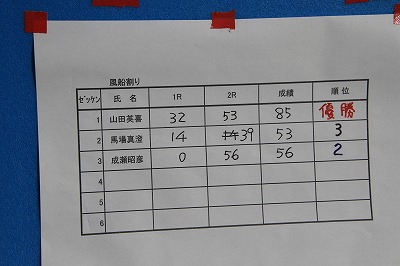 風船割り
ゼッケン 氏 名 1R 2R 成績 順 位
1 山田英喜 32 53 85 優勝
2 馬場真澄 14 39 53 3
3 成瀬昭彦 0 56 56 2
4
5
6